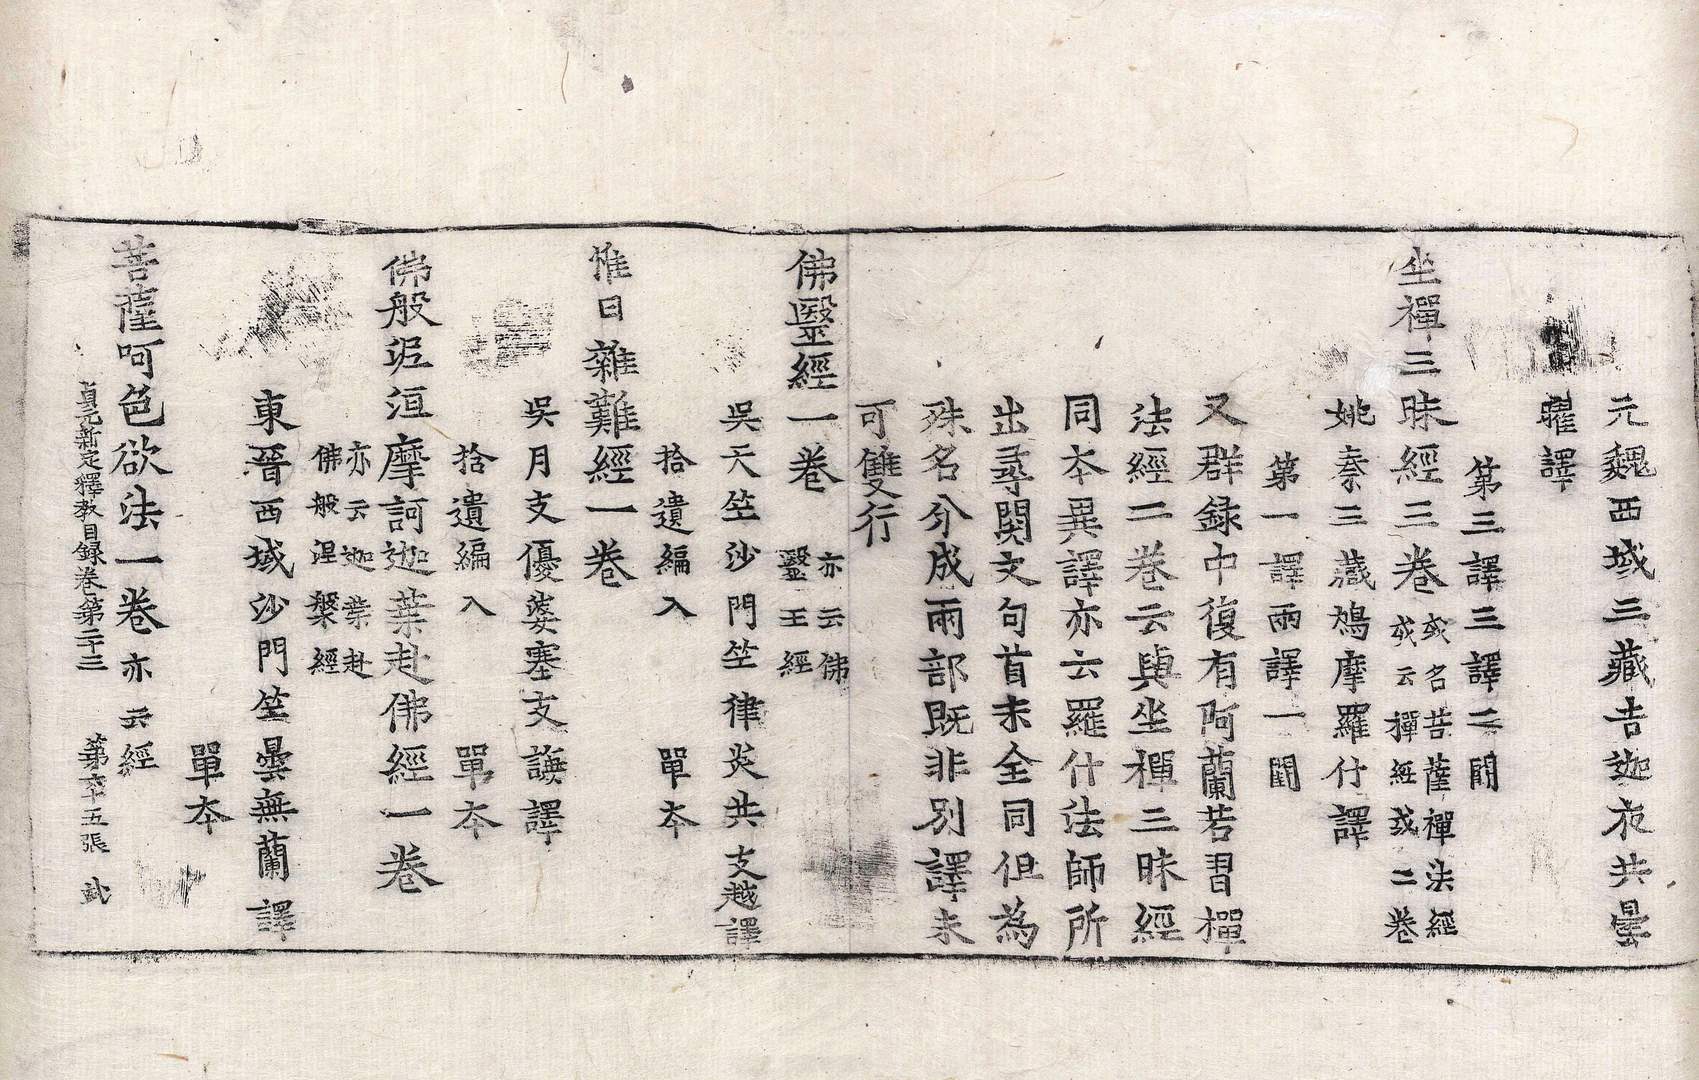 元魏西域三藏吉迦夜共曇
曜譯
第三譯三譯二闕
坐禪三昧經三卷 或名菩薩禪法經
或云禪經或二卷
姚秦三藏鳩摩羅什譯
第一譯兩譯一闕
又群録中復有阿蘭若習禪
法經二卷云與坐禪三昧經
同本異譯亦云羅什法師所
出尋閱文句首末全同但為
殊名分成兩部既非別譯未
可雙行
佛醫經一卷 亦云佛
醫王經
吳天竺沙門竺律炎共支越譯
拾遺編入 單本
惟日雜難經一卷
吳月支優婆塞支謙譯
拾遺編入 單本
佛般泥洹摩訶迦葉赴佛經一卷
亦云迦葉赴
佛般涅槃經
東晉西域沙門竺曇無蘭譯
單本
菩薩呵色欲法一卷 亦云經
貞元新定釋教目録卷第二十三 第六十五張 㢤